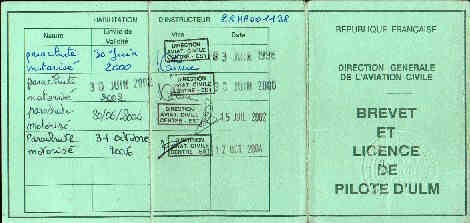 HABILITATION D'INSTRUCTEUR
Nature Limite de Validité Visa Date
parachute motorisé 30 Juin 2000 DIRECTION AVIAT. CIVILE CENTRE-EST 03 JUIN 1998
parachute motorisé 30 JUIN 2002 DIRECTION AVIAT. CIVILE CENTRE-EST JUIN 2000
parachute motorisé 30/06/2004 DIRECTION AVIAT. CIVILE CENTRE-EST 15 JUIL 2002
Parachute motorisé 31 octobre 2006 DIRECTION AVIAT. CIVILE CENTRE-EST 12 OCT 2004
REPUBLIQUE FRANÇAISE
DIRECTION GENERALE
DE L'AVIATION CIVILE
BREVET
ET
LICENCE
DE
PILOTE D'ULM